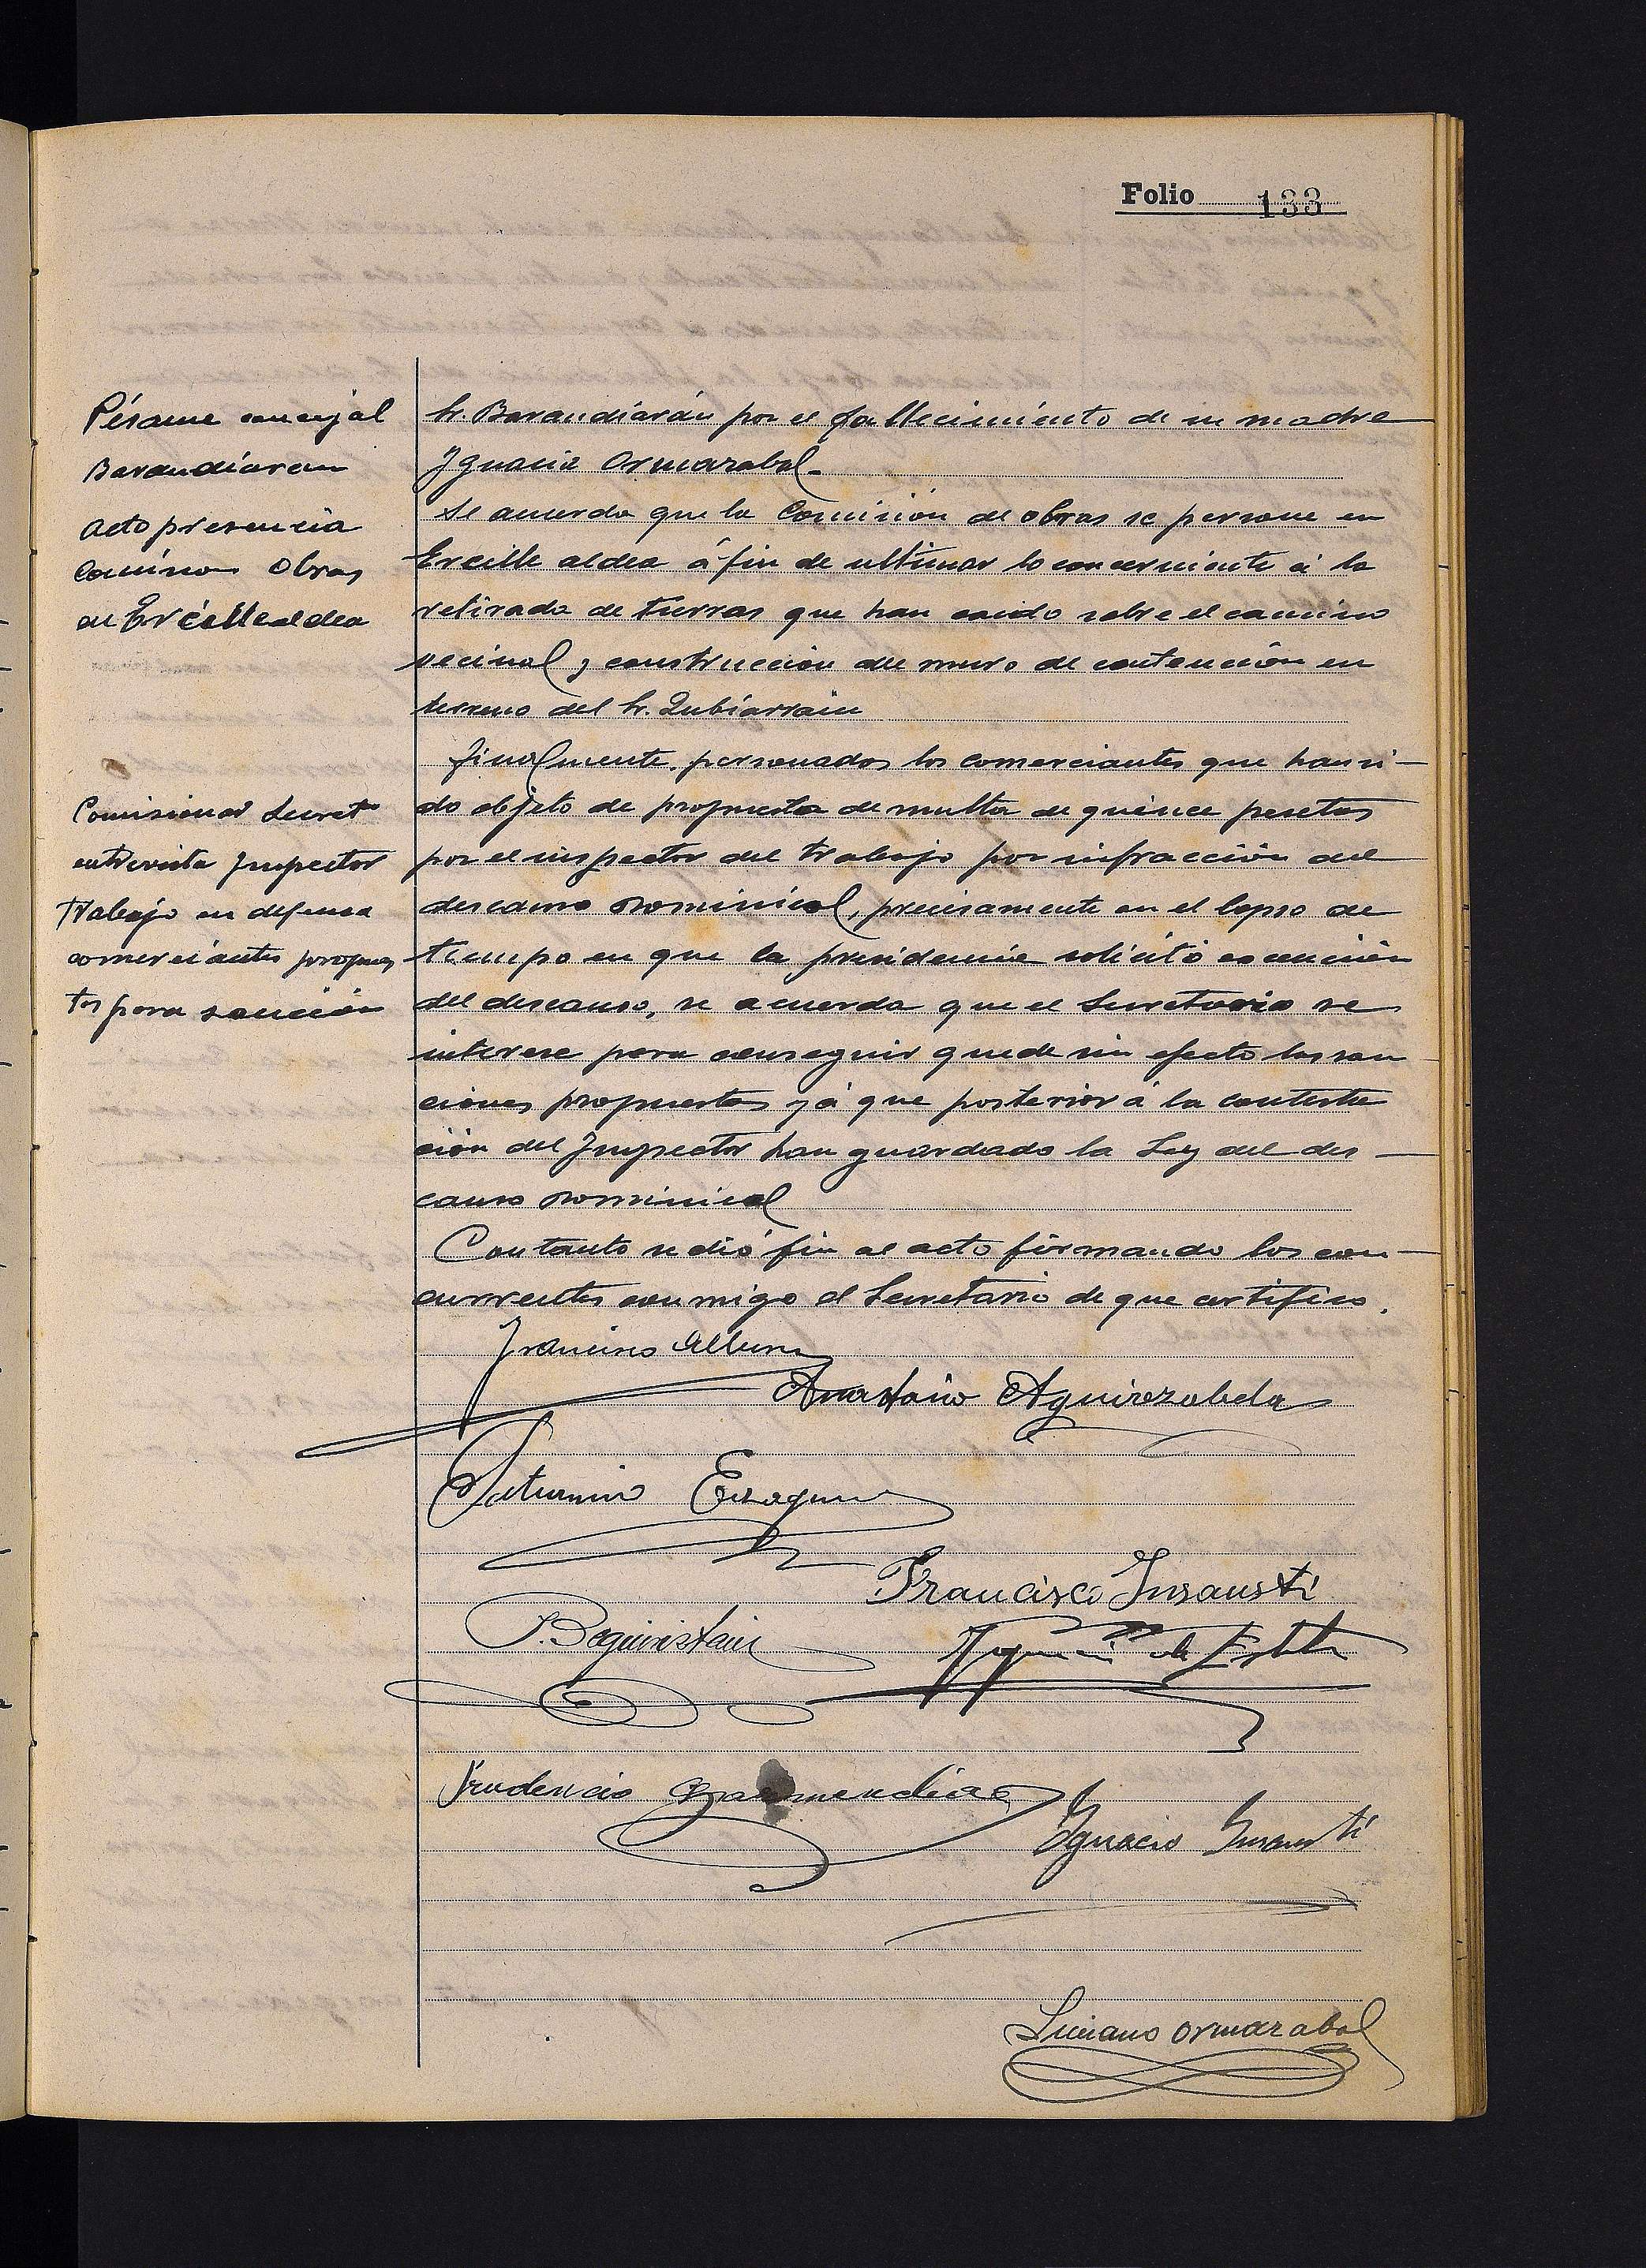 Folio 133
Pésame concejal
Barandiaran
Sr. Barandiarán por el fallecimiento de su madre
Ygnacia Ormazabal.
acto presencia
Comísion Obras
en Ercilleal dea
Se acuerda que la Comisión de obras se persone en
Ercille aldea á fin de ultimar lo concerniente á la
retirada de tierras que han caido sobre el camino
vecinal y construcción de muro de contención en
terreno del Sr. Zubiarrain
Comisionar Secret
entrevista Inspector
Trabajo en defensa
comerciantes propues
tos para sanción
finalmente, personados los comerciantes que han si-
do objeto de propuesta de multa de quince pesetas
por el inspector del trabajo por infracción del
descanso Dominical, precisamente en el lapso de
tiempo en que la presidencia solicitó excención
del descanso, se acuerda que el Secretario se
interese para conseguir quede sin efecto las san
ciones propuestas yá que posterior á la contesta
ción del Inspector han guardado la Ley del des-
canso Dominical
Con tanto se dió fin al acto firmando los con-
currentes conmigo el Secretario de que certifico.
Francisco
Anastasio Aguirezabala
Saturnino Ezaguirre
Francisco Insausti
J. Beguiristain
Ygnacio de
Prudencio Garmendia
Ygnacio Insausti
Luciano Ormazabal